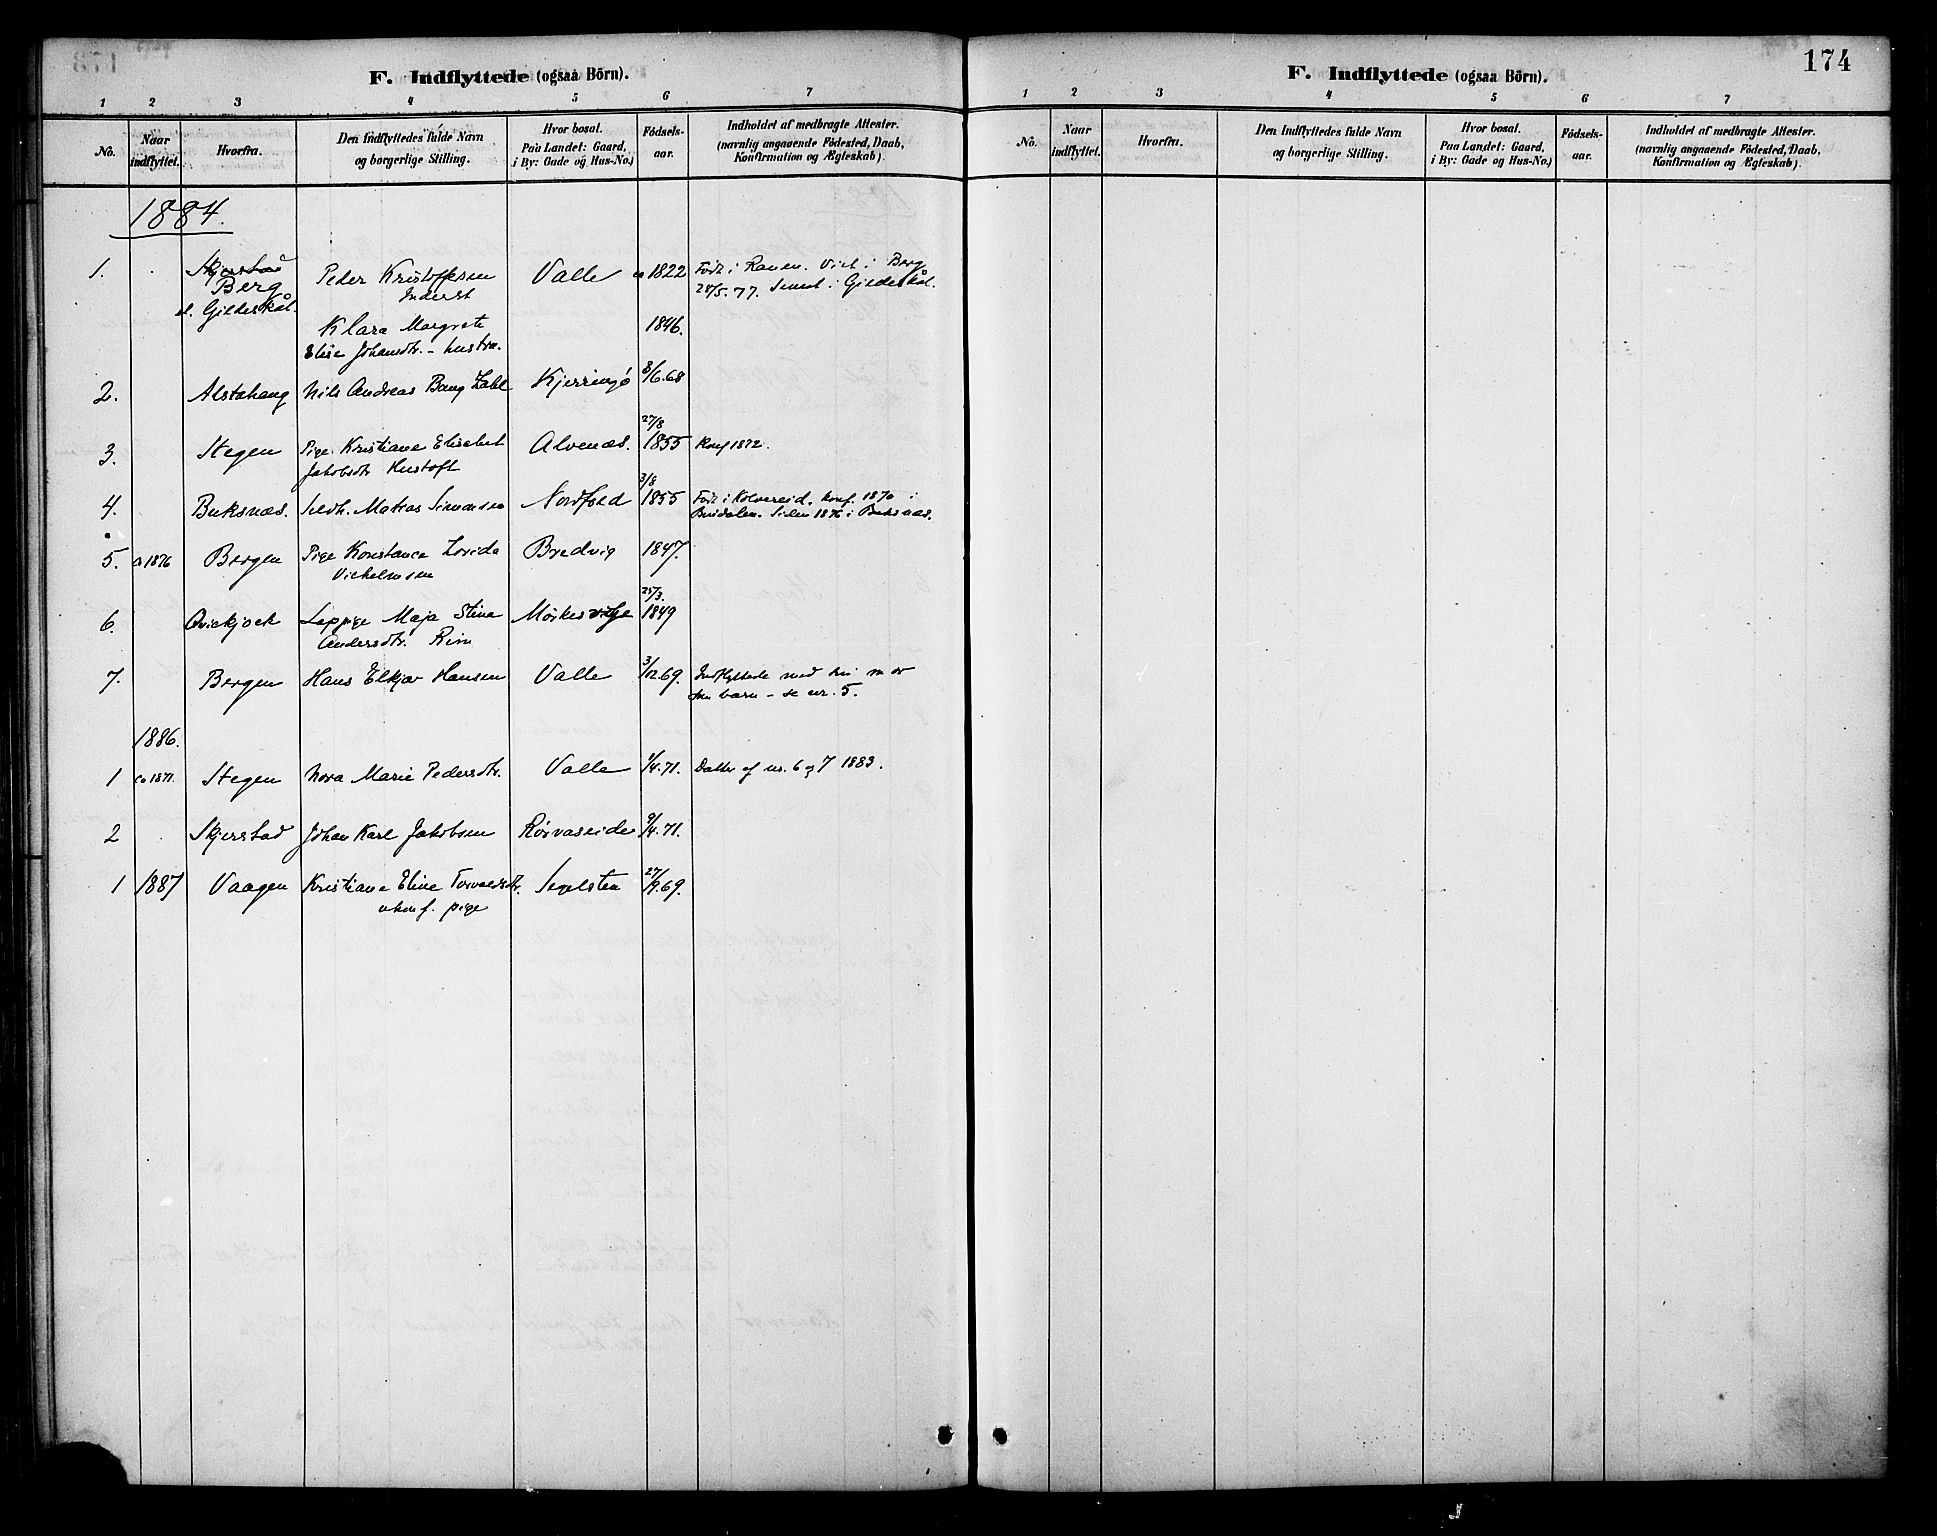 F. Indflyttede (ogsaa Börn).
1 2 3 4 5 6 7
No.
Naar indflyttet.
Hvorfra.
Den Indflyttedes fulde Navn
og borgerlige Stilling.
Hvor bosat.
Paa Landet: Gaard,
i By: Gade og Hus-No.)
Födsels-
aar.
Indholdet af medbragte Attester.
(navnlig angaaende Födested, Daab,
Konfirmation og Ægteskab).
1884.
1. Skjerstad Peder Kristoffersen Valle ca 1822 Født i Ranen. Viet i Berg
Berg Inderst 28/5.77. Senest i Gildeskål.
el. Gildeskål.
Klara Margrete 1846.
Elise Johansdtr. - hustru.
2. Alstahaug Nils Andreas Bang Zahl Kjerringö 8/6.68
3. Stegen Pige Kristiane Elisabet Alvenæs. 27/8 1855 Konf 1872.
Jakobsdtr Hustoft
4. Buksnæs. Matias Simonsen Nordfold 3/8 1855 Født i Kolvereid. Konf. 1870 i
Siden 1876 i Buksnæs.
5. ca 1876 Bergen Pige Konstance Lovida Bredvig 1847.
Vilhelmsen
6. Qvickjock Lappige Maja Stina 25/3. 1849
Andersdtr. Rim
7. Bergen Hans Elkjær Hansen Valle 3/12.69. Indflyttede med sin mor
som barn - se nr. 5.
1886.
1 ca 1871. Stegen Nora Marie Pedersdtr. Valle 1/4.71. Datter af nr. 6 og 7 1883.
2 Skjerstad Johan Karl Jakobsen Rørvaseidet 9/4.71.
1 1887 Vaagen Kristiane Elise Torvaldsdtr. Segelsten 27/9.69.
ukonf. pige
174
F. Indflyttede (ogsaa Börn).
1 2 3 4 5 6 7
No.
Naar indflyttet.
Hvorfra.
Den Indflyttedes fulde Navn
og borgerlige Stilling.
Hvor bosat.
Paa Landet: Gaard,
i By: Gade og Hus-No.)
Födsels-
aar.
Indholdet af medbragte Attester.
(navnlig angaaende Födested, Daab,
Konfirmation og Ægteskab).